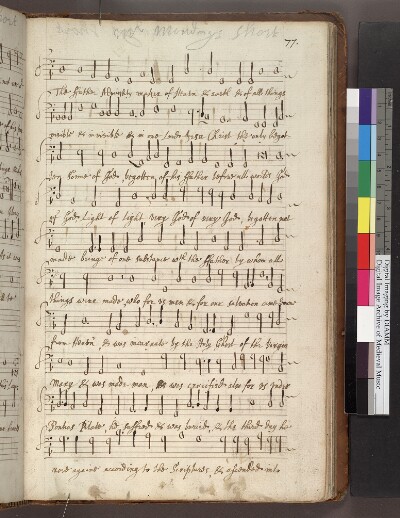 Mundays Short
77.
The ffather Almighty maker of Heaven & earth & of all things
visible & invisible & in one Lord Jesus Christ the only begot-
ten Sonne of God, begotten of his ffather before all worlds God
of God, light of light very God of very God, begotten not
made being of one substance wth the ffather by whom all
things were made, who for us men & for our salvation came downe
from Heaven, & was incarnate by the Holy Ghost of the Virgin
Mary & was made man, & was crucified also for us under
Pontius Pilate, he suffered & was buried, & the third day he
rose againe according to the Scriptures, & ascended into
Digital Imaging by DIAMM
Digital Image Archive of Medieval Music